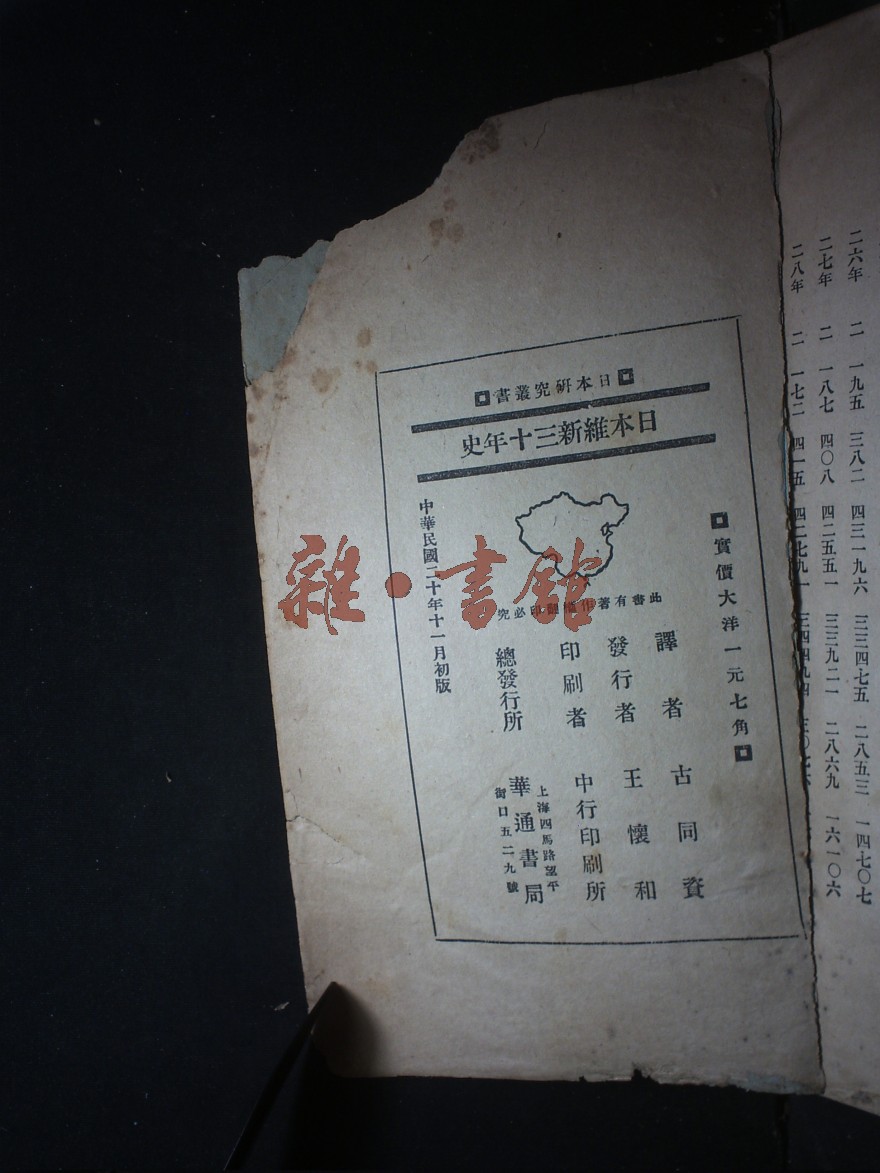 日本研究叢書
日本維新三十年史
實價大洋一元七角
此書有著作權翻印必究
譯者 古同資
發行者 王懷和
印刷者 中行印刷所
總發行所 華通書局
上海四馬路望平
街口五二九號
中華民國二十年十一月初版
雜·書館
二六年 二一九五 三八二 四三一九六 三三四七五 二八五三 一四七〇七
二七年 二一八七 四〇八 四二五五一 三三九二一 二八六九 一六一〇六
二八年 二一七二 四一五 四二七九一